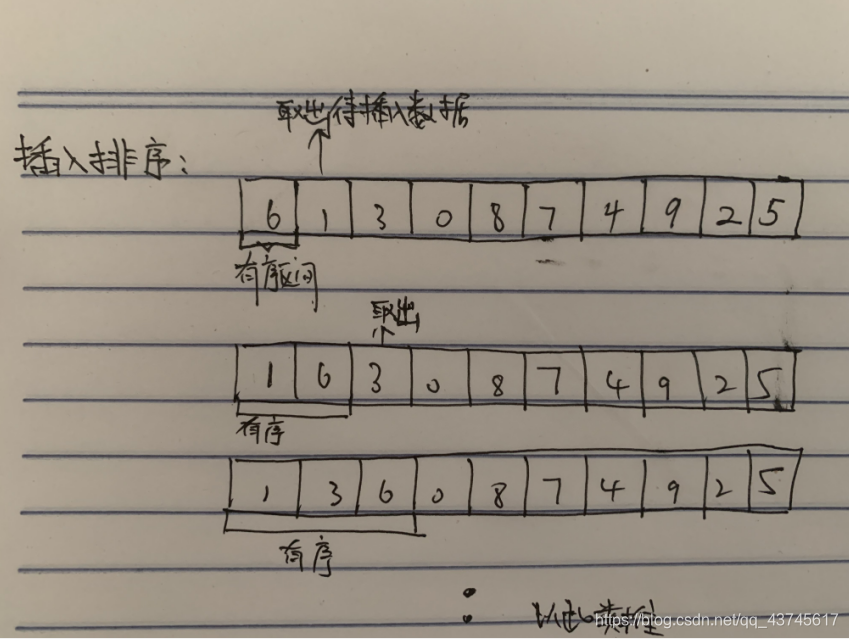 取出待插入数据
插入排序:
6 1 3 0 8 7 4 9 2 5
有序区间
取出
1 6 3 0 8 7 4 9 2 5
有序
1 3 6 0 8 7 4 9 2 5
有序
以此类推
https://blog.csdn.net/qq_43745617